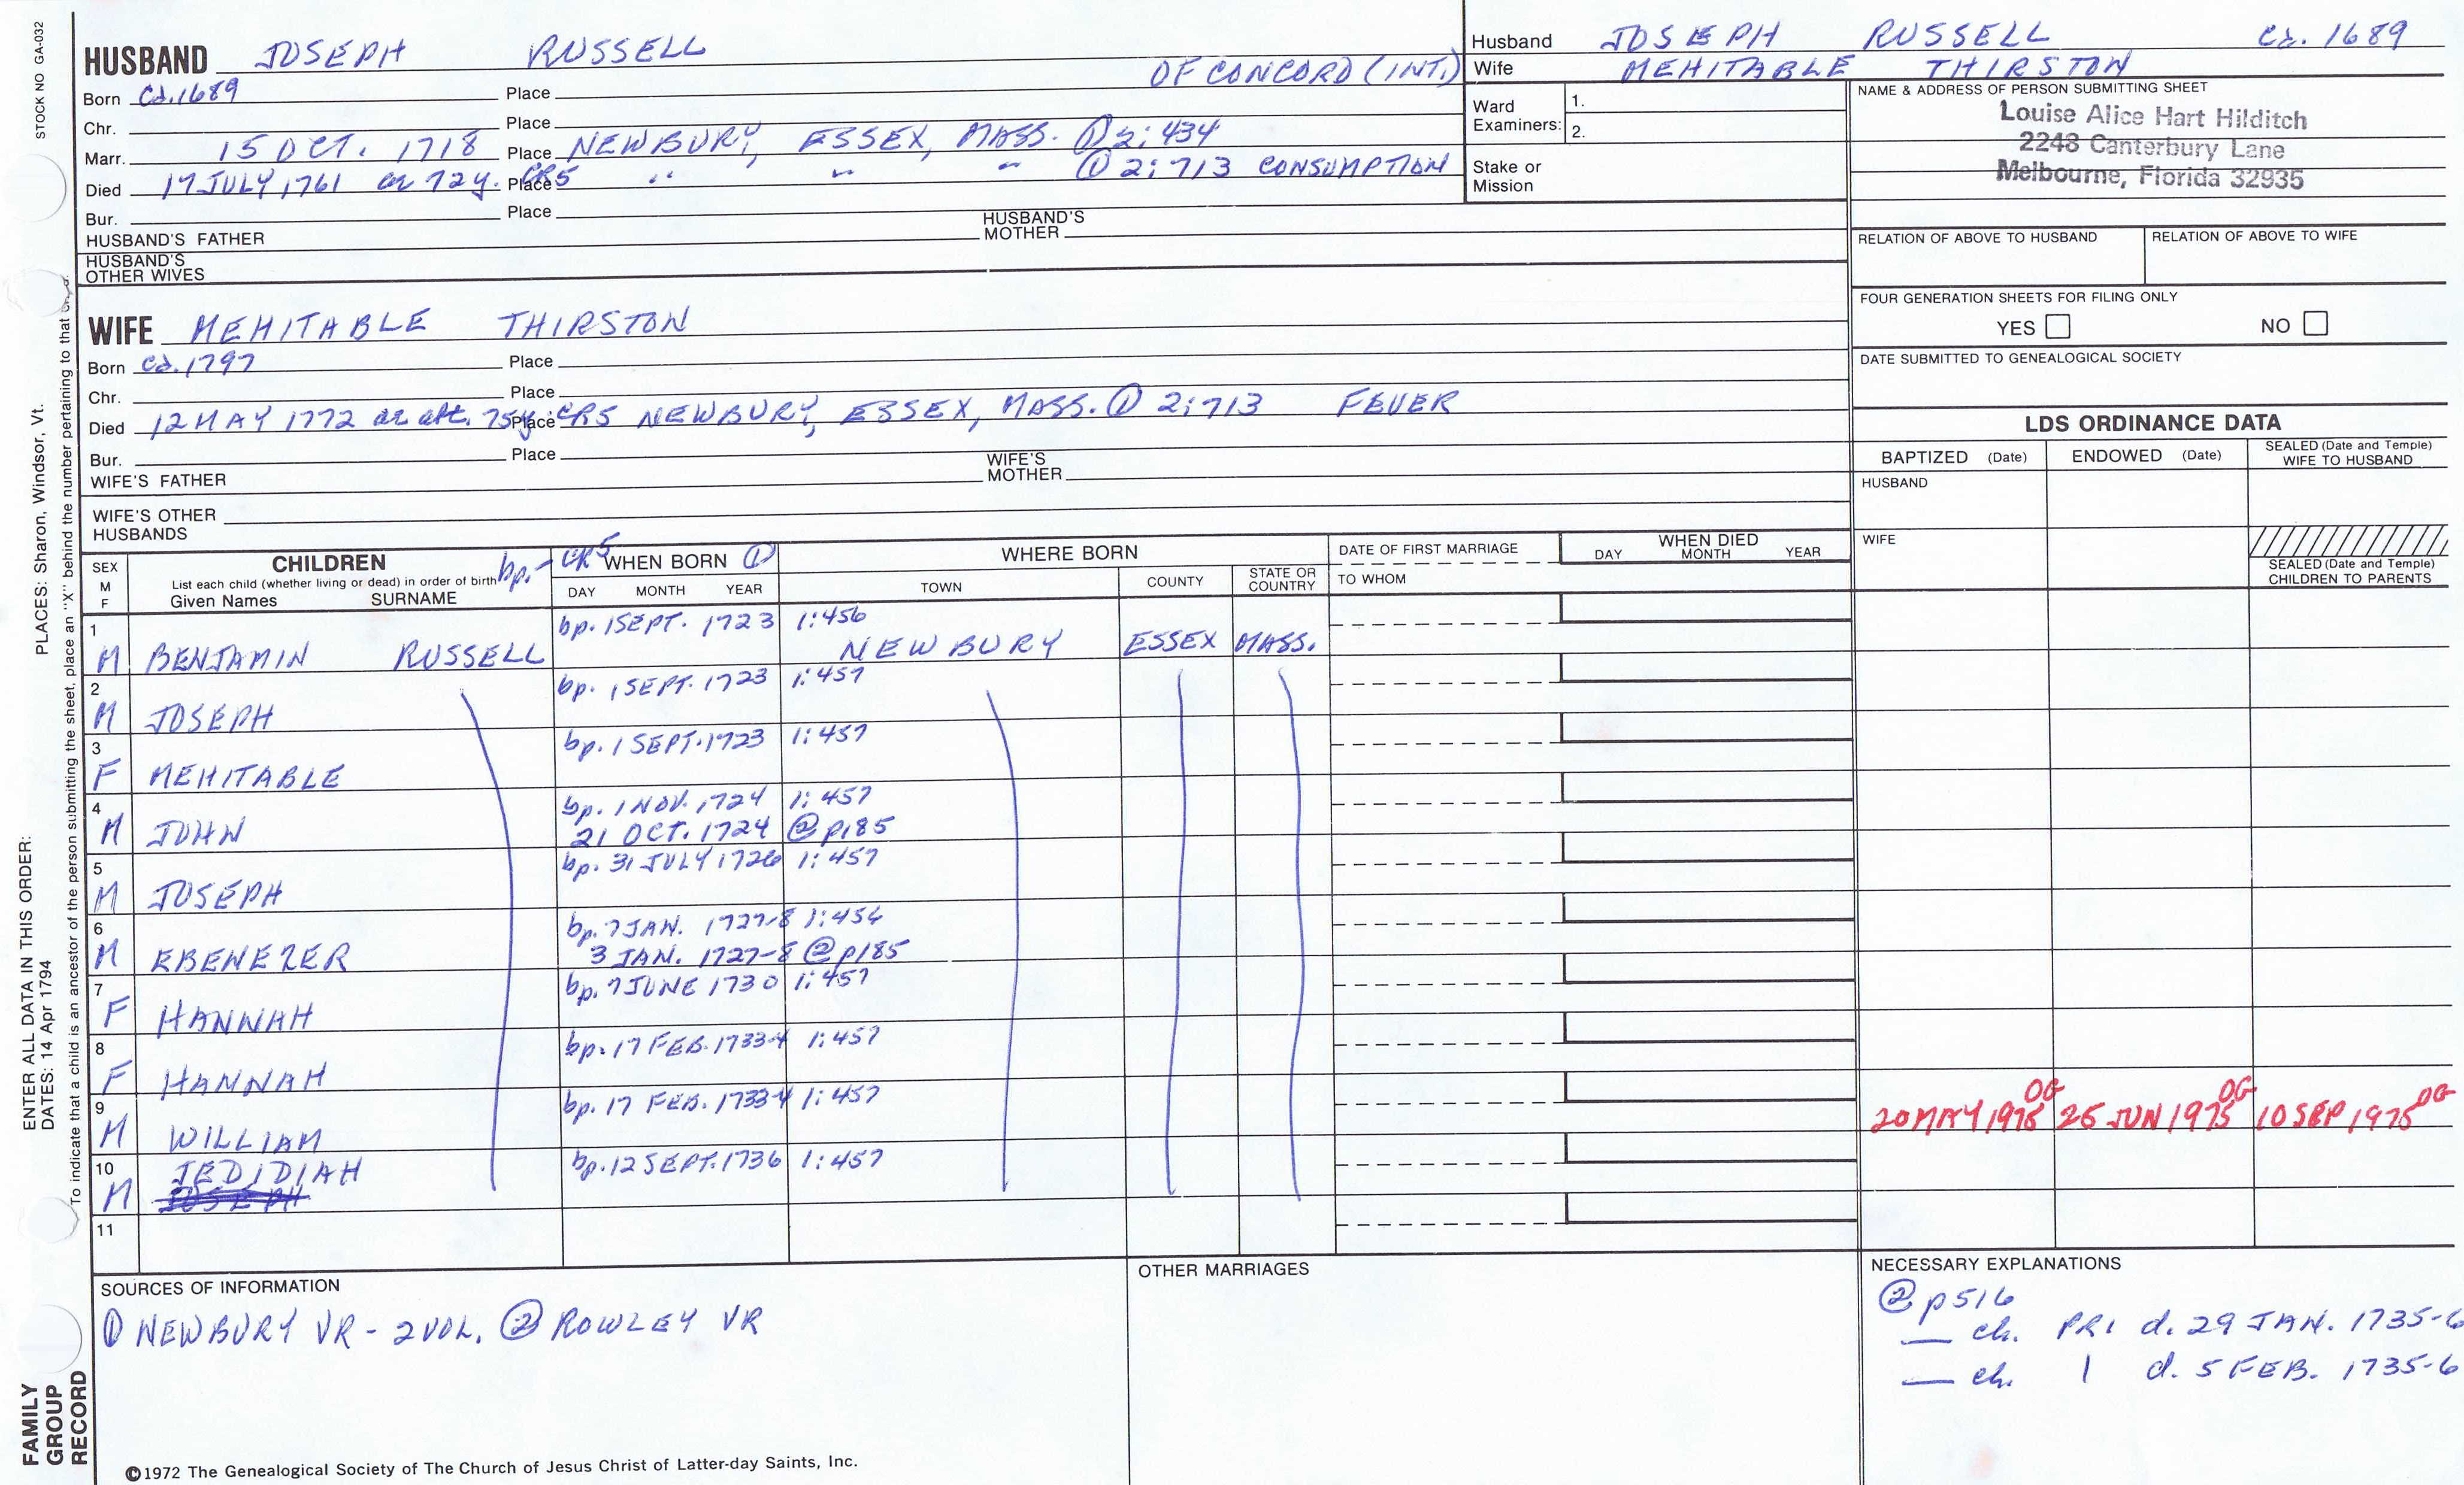 STOCK NO GA-032
PLACES: Sharon, Windsor, Vt.
ENTER ALL DATA IN THIS ORDER:
DATES: 14 Apr 1794
To indicate that a child is an ancestor of the person submitting the sheet, place an "X" behind the number pertaining to that
FAMILY
GROUP
RECORD
HUSBAND JOSEPH RUSSELL OF CONCORD (INT.)
Born ca. 1689 Place
Chr. Place
Marr. 15 OCT. 1718 Place NEWBURY, ESSEX, MASS. ① 2:434
Died 17 JULY 1761 ae 72 y. Place CR5 " " " ① 2:713 CONSUMPTION
Bur. Place
HUSBAND'S FATHER
HUSBAND'S MOTHER
HUSBAND'S
OTHER WIVES
Husband JOSEPH RUSSELL ca. 1689
Wife MEHITABLE THIRSTON
Ward
Examiners: 1.
2.
Stake or
Mission
NAME & ADDRESS OF PERSON SUBMITTING SHEET
Louise Alice Hart Hilditch
2248 Canterbury Lane
Melbourne, Florida 32935
RELATION OF ABOVE TO HUSBAND RELATION OF ABOVE TO WIFE
FOUR GENERATION SHEETS FOR FILING ONLY
YES NO
DATE SUBMITTED TO GENEALOGICAL SOCIETY
WIFE MEHITABLE THIRSTON
Born ca. 1797 Place
Chr. Place
Died 12 MAY 1772 ae abt. 75y. Place CR5 NEWBURY, ESSEX, MASS. ① 2:713 FEVER
Bur. Place
WIFE'S FATHER
WIFE'S MOTHER
WIFE'S OTHER
HUSBANDS
LDS ORDINANCE DATA
BAPTIZED (Date) ENDOWED (Date) SEALED (Date and Temple) WIFE TO HUSBAND
HUSBAND
WIFE
SEALED (Date and Temple)
CHILDREN TO PARENTS
SEX
M
F
CHILDREN
List each child (whether living or dead) in order of birth
Given Names SURNAME
bp. - CR5
WHEN BORN ①
DAY MONTH YEAR
WHERE BORN
TOWN COUNTY STATE OR COUNTRY
DATE OF FIRST MARRIAGE
TO WHOM
WHEN DIED
DAY MONTH YEAR
1 bp. 1 SEPT. 1723 1:456
M BENJAMIN RUSSELL NEWBURY ESSEX MASS.
2 bp. 1 SEPT. 1723 1:457
M JOSEPH
3 bp. 1 SEPT. 1723 1:457
F MEHITABLE
4 bp. 1 NOV. 1724 1:457
M JOHN 21 OCT. 1724 ② p185
5 bp. 31 JULY 1726 1:457
M JOSEPH
6 bp. 7 JAN. 1727-8 1:456
M EBENEZER 3 JAN. 1727-8 ② p185
7 bp. 7 JUNE 1730 1:457
F HANNAH
8 bp. 17 FEB. 1733-4 1:457
F HANNAH
9 bp. 17 FEB. 1733-4 1:457
M WILLIAM 20 MAY 1975 OG 25 JUN 1975 OG 10 SEP 1975 OG
10 JEDIDIAH bp. 12 SEPT. 1736 1:457
M JOSEPH
11
SOURCES OF INFORMATION
① NEWBURY VR - 2 VOL. ② ROWLEY VR
OTHER MARRIAGES
NECESSARY EXPLANATIONS
② p516
— ch. PR1 d. 29 JAN. 1735-6
— ch. 1 d. 5 FEB. 1735-6
©1972 The Genealogical Society of The Church of Jesus Christ of Latter-day Saints, Inc.